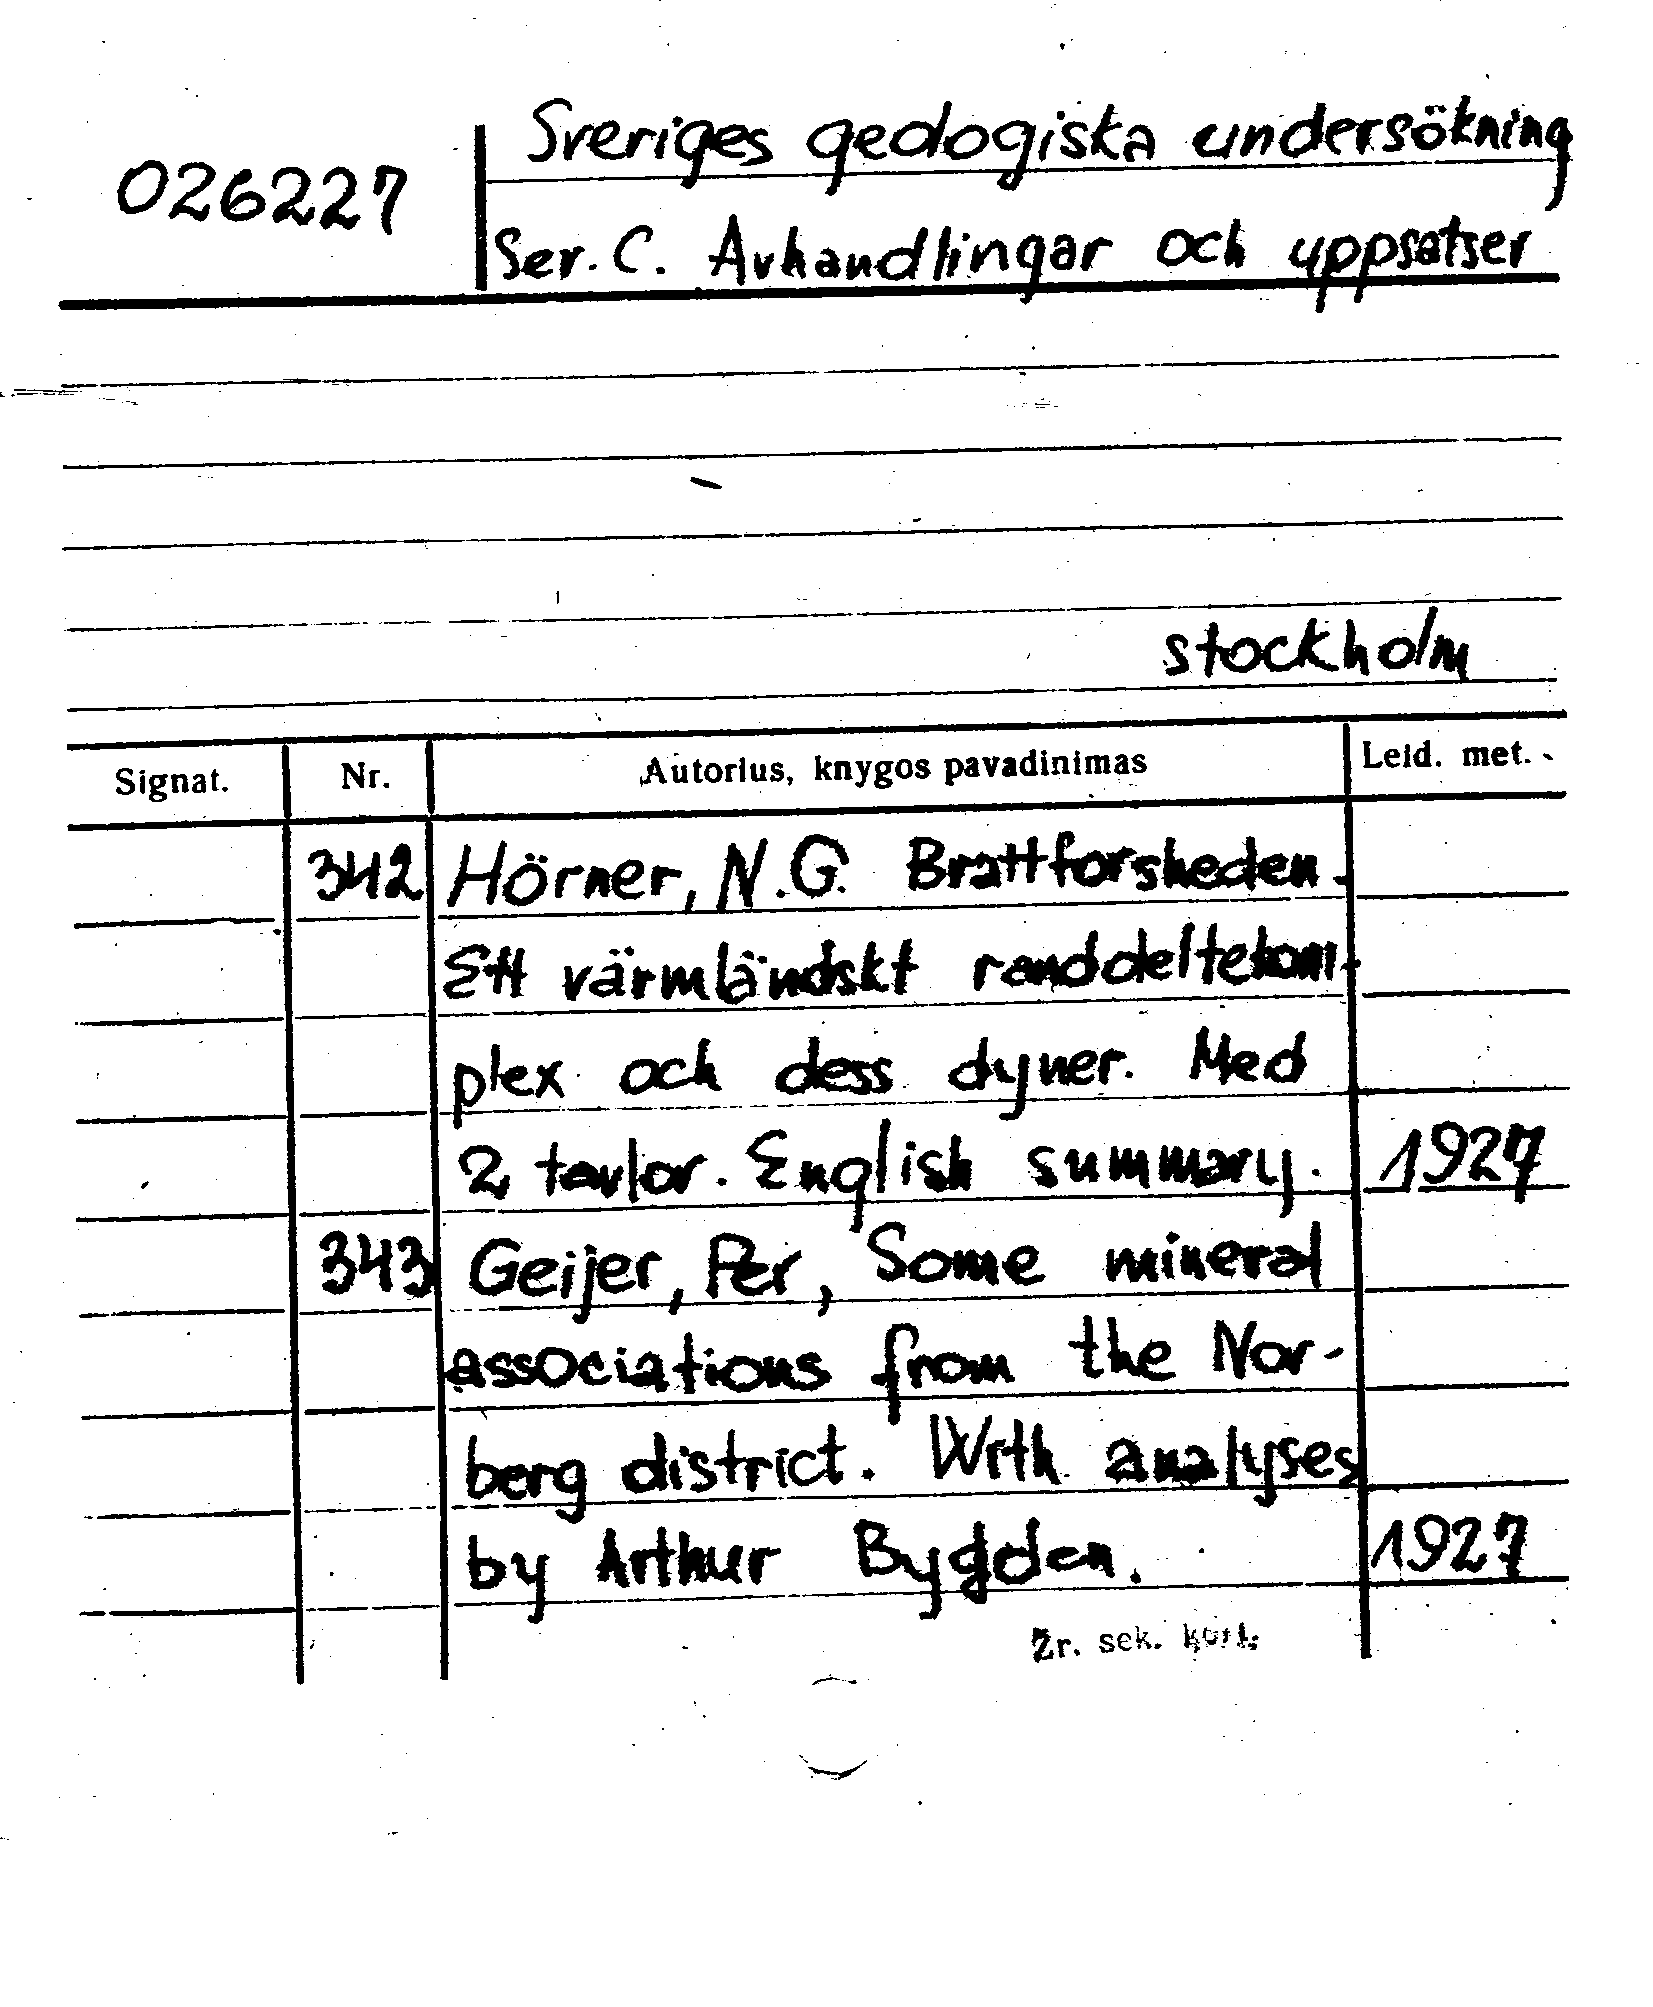 Sveriges geologiska undersökning
026227
Ser. C. Avhandlingar och uppsatser
stockholm
Signat. Nr. Autorius, knygos pavadinimas Leid. met.
342 Hörner, N.G. Brattforsheden.
Ett värmländskt randdeltekom-
plex och dess dyner. Med
2 tavlor. English summary. 1927
343 Geijer, Per, Some mineral
associations from the Nor-
berg district. With analyses
by Arthur Bygden. 1927
Žr. sek. kort.